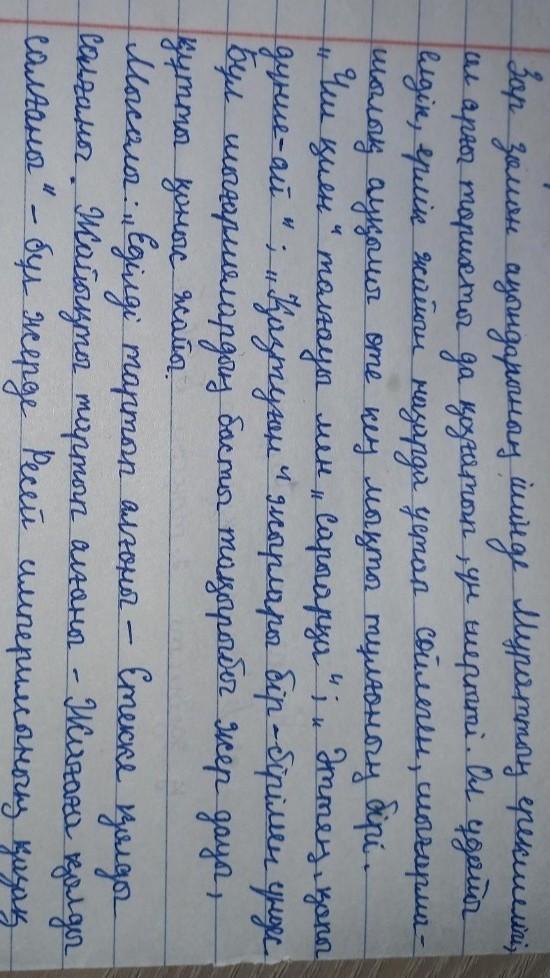 Зар заман ақындарының ішінде Мұраттың ерекшелігі,
ол арғы тарихты да қозғатып, үн шертті. Ол әдетті
елдік, ерлік жайын назарда ұстап сөйлеген, шығарма-
шылық ауқымы өте кең мықты тұлғаның бірі.
„Үш қиян" толғауы мен „Сарыарқа"; „Әттең, қапы
дүние-ай"; „Қазтуған" жырлары бір-бірімен үндес
Бұл шығармалардың басты тақырыбы жер дауы,
құтты қоныс жайы.
Мысалы: „Еділді тартып алғаны – Етекке қолды
салғаны. Жайықты тартып алғаны – Жағаға қолды
салғаны" – бұл жерде Ресей империясының қазақ